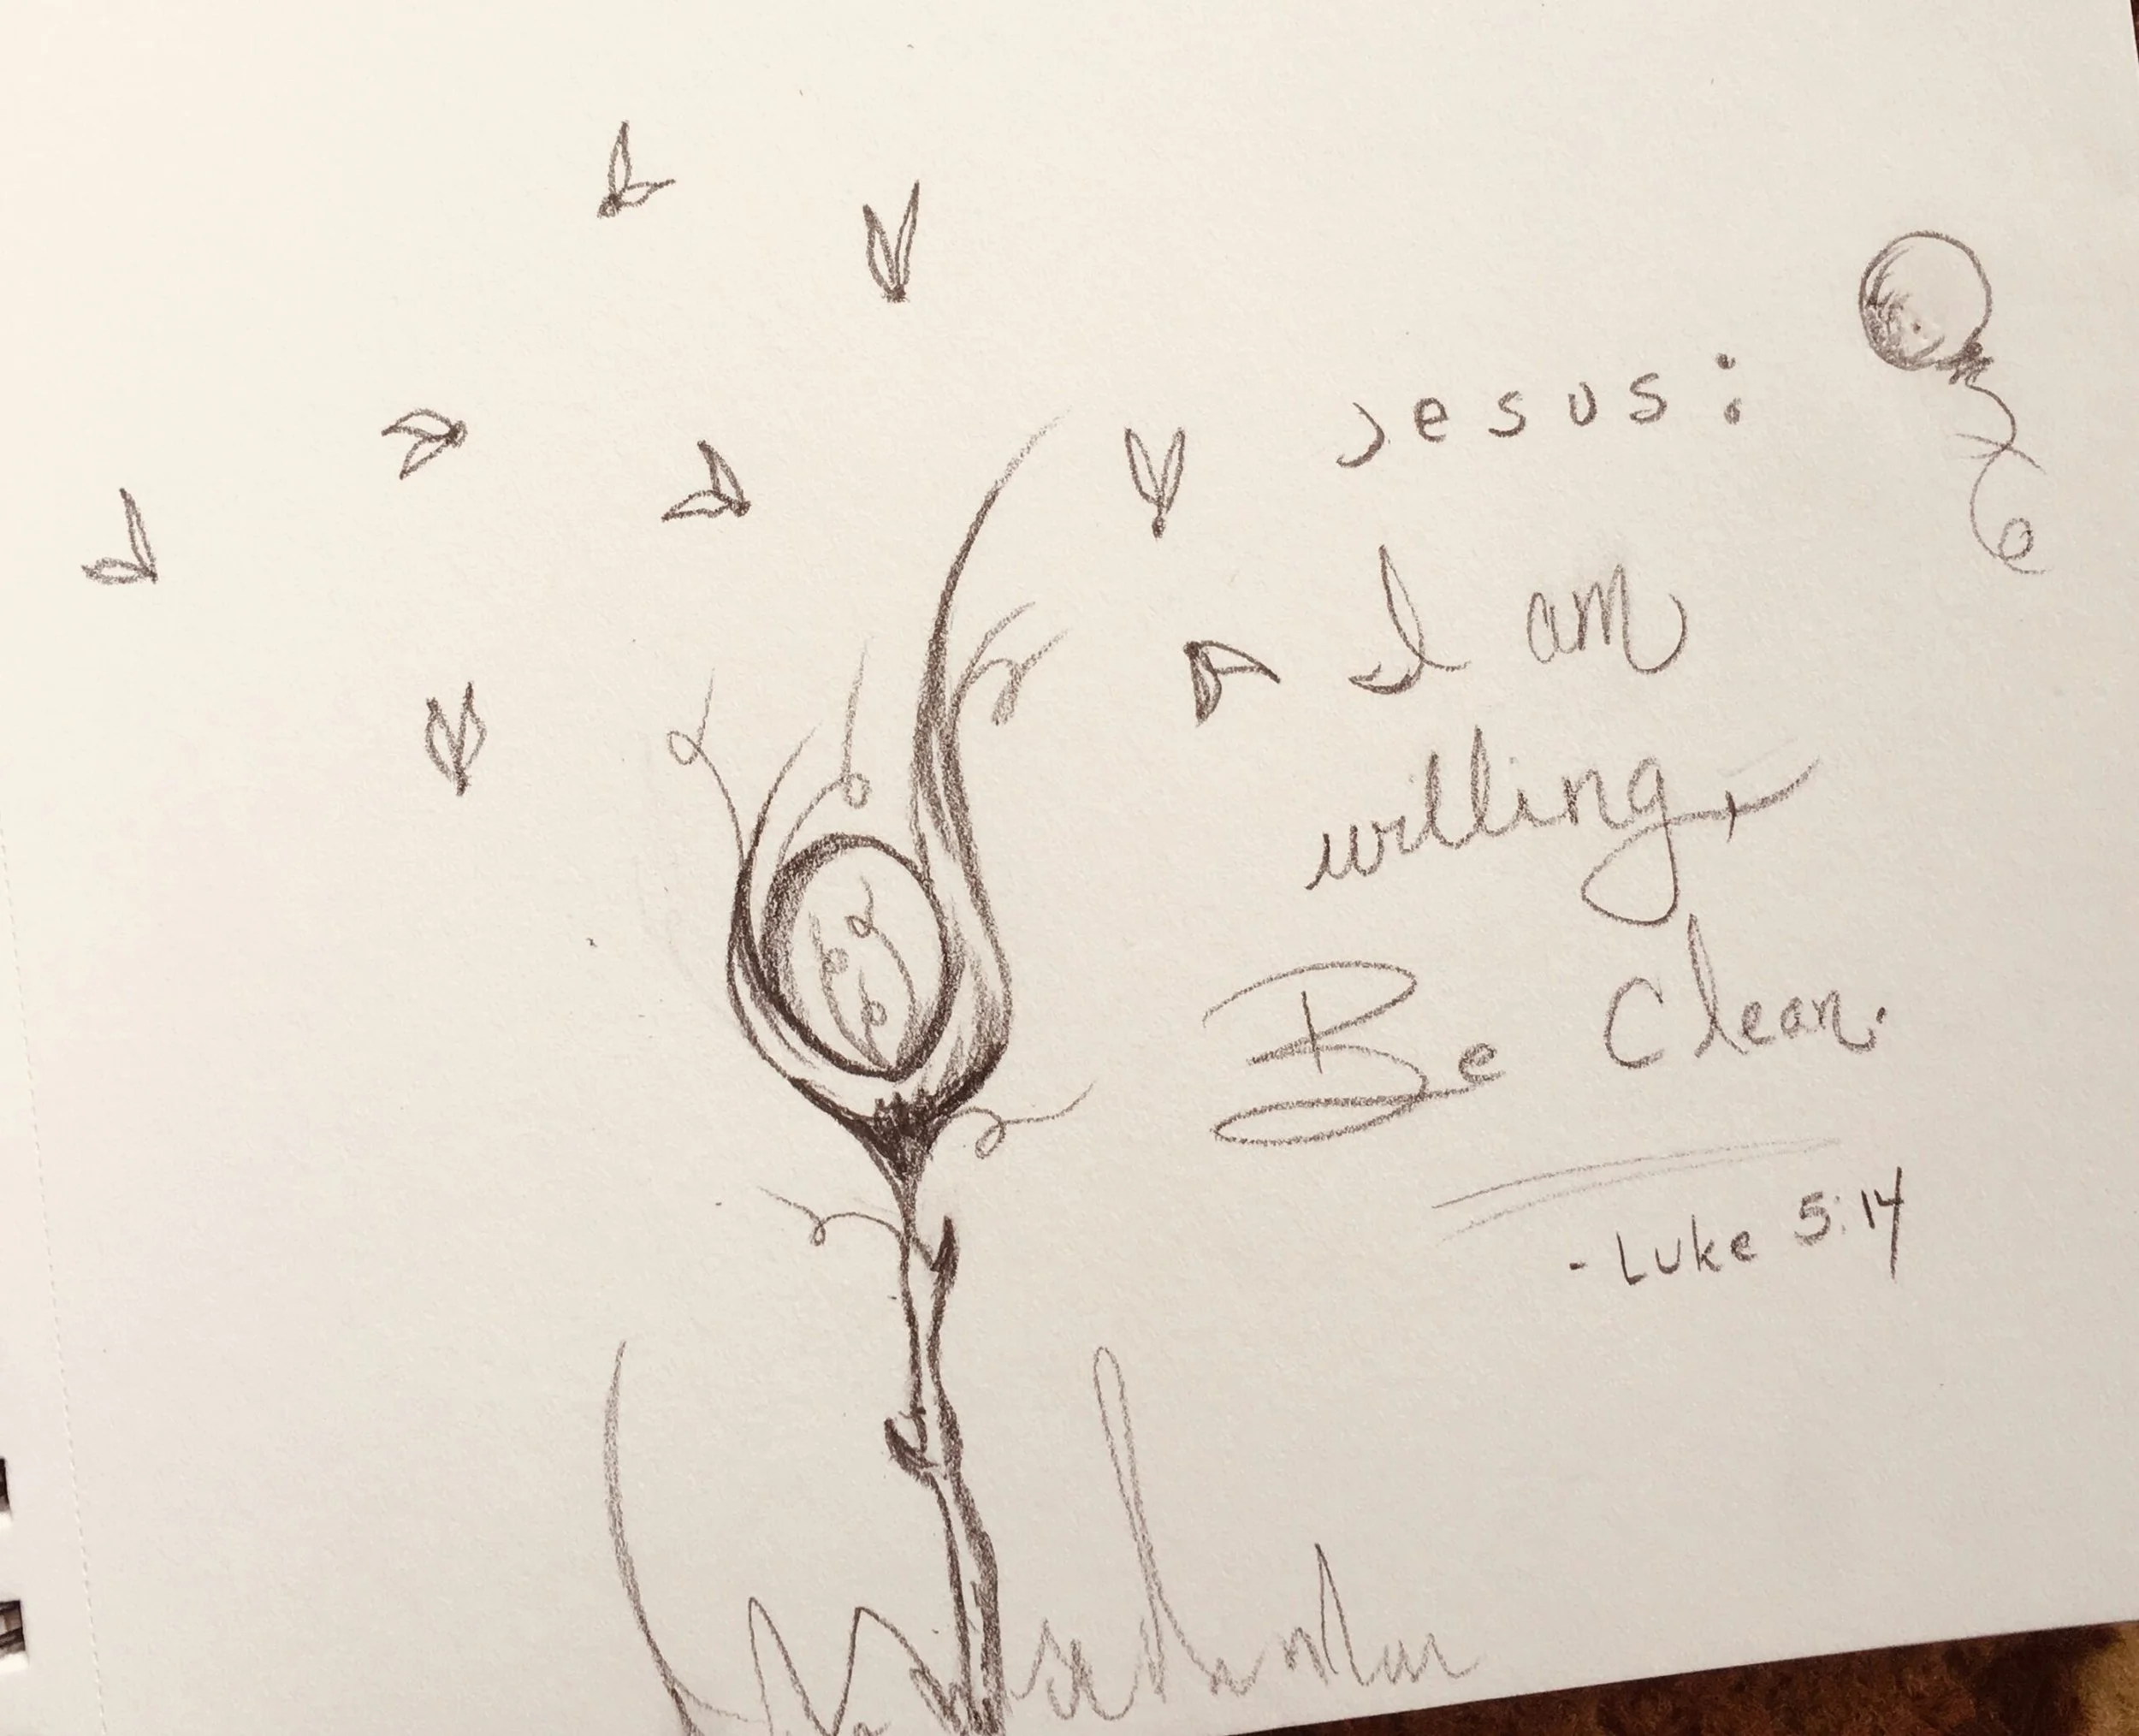 Jesus:
I am
willing,
Be Clean.
- Luke 5:14